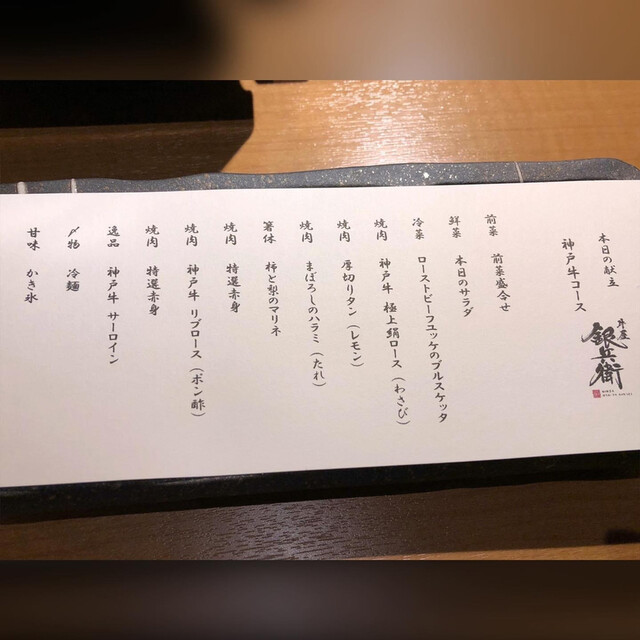 本日の献立
神戸牛コース
銀兵衛
前菜 前菜盛合せ
鮮菜 本日のサラダ
冷菜 ローストビーフユッケのブルスケッタ
焼肉 神戸牛 極上絹ロース（わさび）
焼肉 厚切りタン（レモン）
焼肉 まぼろしのハラミ（たれ）
箸休 柿と梨のマリネ
焼肉 特選赤身
焼肉 神戸牛 リブロース（ポン酢）
焼肉 特選赤身
逸品 神戸牛 サーロイン
〆物 冷麺
甘味 かき氷